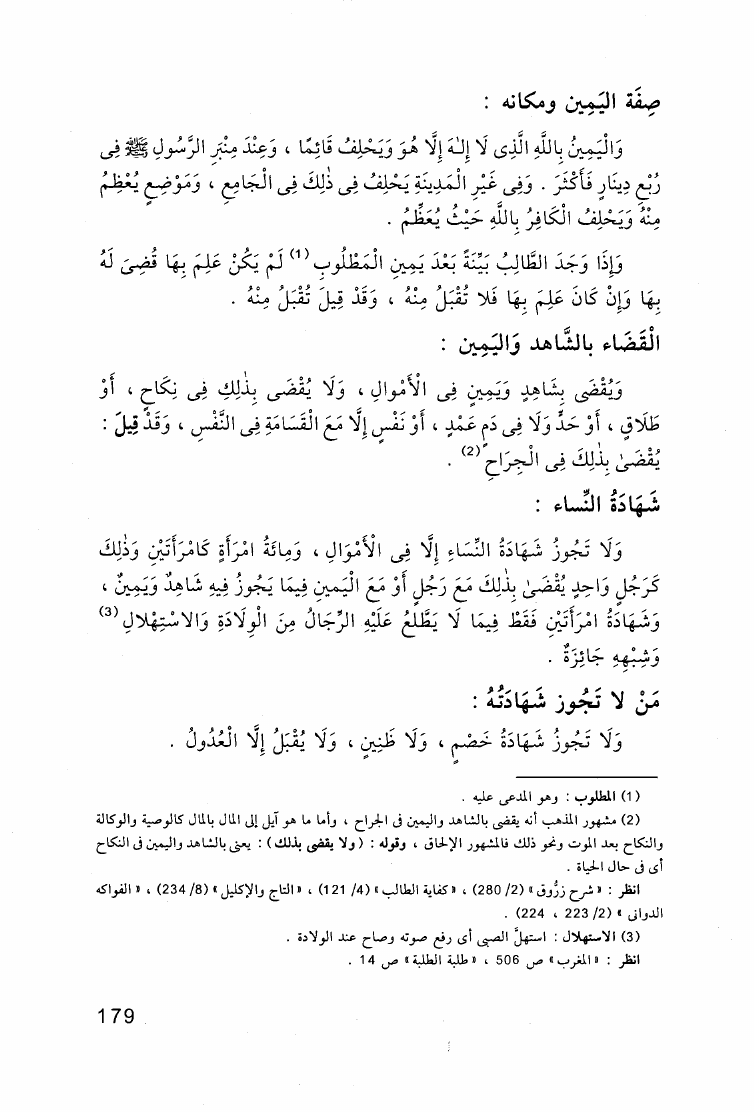 صِفَة اليَمِين ومكانه :
وَالْيَمِينُ بِاللَّهِ الَّذِى لَا إِلـٰهَ إِلَّا هُوَ وَيَحْلِفُ قَائِمًا ، وَعِنْدَ مِنْبَرِ الرَّسُولِ ﷺ فِى
رُبْعِ دِينَارٍ فَأَكْثَرَ . وَفِى غَيْرِ الْمَدِينَةِ يَحْلِفُ فِى ذٰلِكَ فِى الْجَامِعِ ، وَمَوْضِعٍ يُعْظِمُ
مِنْهُ وَيَحْلِفُ الْكَافِرُ بِاللَّهِ حَيْثُ يُعَظِّمُ .
وَإِذَا وَجَدَ الطَّالِبُ بَيِّنَةً بَعْدَ يَمِينِ الْمَطْلُوبِ (1) لَمْ يَكُنْ عَلِمَ بِهَا قُضِىَ لَهُ
بِهَا وَإِنْ كَانَ عَلِمَ بِهَا فَلا تُقْبَلُ مِنْهُ ، وَقَدْ قِيلَ تُقْبَلُ مِنْهُ .
الْقَضَاء بالشَّاهد وَاليَمِين :
وَيُقْضَى بِشَاهِدٍ وَيَمِينٍ فِى الْأَمْوالِ ، وَلَا يُقْضَى بِذٰلِكِ فِى نِكَاحٍ ، أَوْ
طَلَاقٍ ، أَوْ حَدٍّ وَلَا فِى دَمِ عَمْدٍ ، أَوْ نَفْسٍ إِلَّا مَعَ الْقَسَامَةِ فِى النَّفْسِ ، وَقَدْ قِيلَ :
يُقْضَىٰ بِذٰلِكَ فِى الْجِرَاحِ (2) .
شَهَادَةُ النِّساء :
وَلَا تَجُوزُ شَهَادَةُ النِّسَاءِ إِلَّا فِى الْأَمْوَالِ ، وَمِائَةُ امْرَأَةٍ كَامْرَأَتَيْنِ وَذٰلِكَ
كَرَجُلٍ وَاحِدٍ يُقْضَىٰ بِذٰلِكَ مَعَ رَجُلٍ أَوْ مَعَ الْيَمينِ فِيمَا يَجُوزُ فِيهِ شَاهِدٌ وَيَمِينٌ ،
وَشَهَادَةُ امْرَأَتَيْنِ فَقَطْ فِيمَا لَا يَطَّلِعُ عَلَيْهِ الرِّجَالُ مِنَ الْوِلَادَةِ وَالاسْتِهْلالِ (3)
وَشِبْهِهِ جَائِزَةٌ .
مَنْ لا تَجُوز شَهَادَتُهُ :
وَلَا تَجُوزُ شَهَادَةُ خَصْمٍ ، وَلَا ظَنِينٍ ، وَلَا يُقْبَلُ إِلَّا الْعُدُولُ .
(1) المطلوب : وهو المدعى عليه .
(2) مشهور المذهب أنه يقضى بالشاهد واليمين فى الجراح ، وأما ما هو آيل إلى المال بالمال كالوصية والوكالة
والنكاح بعد الموت ونحو ذلك فالمشهور الإلحاق ، وقوله : ( ولا يقضى بذلك ) : يعنى بالشاهد واليمين فى النكاح
أى فى حال الحياة .
انظر : « شرح زرّوق » (2/ 280) ، « كفاية الطالب » (4/ 121) ، « التاج والإكليل » (8/ 234) ، « الفواكه
الدوانى » (2/ 223 ، 224) .
(3) الاستهلال : استهلَّ الصبى أى رفع صوته وصاح عند الولادة .
انظر : « المغرب » ص 506 ، « طلبة الطلبة » ص 14 .
179